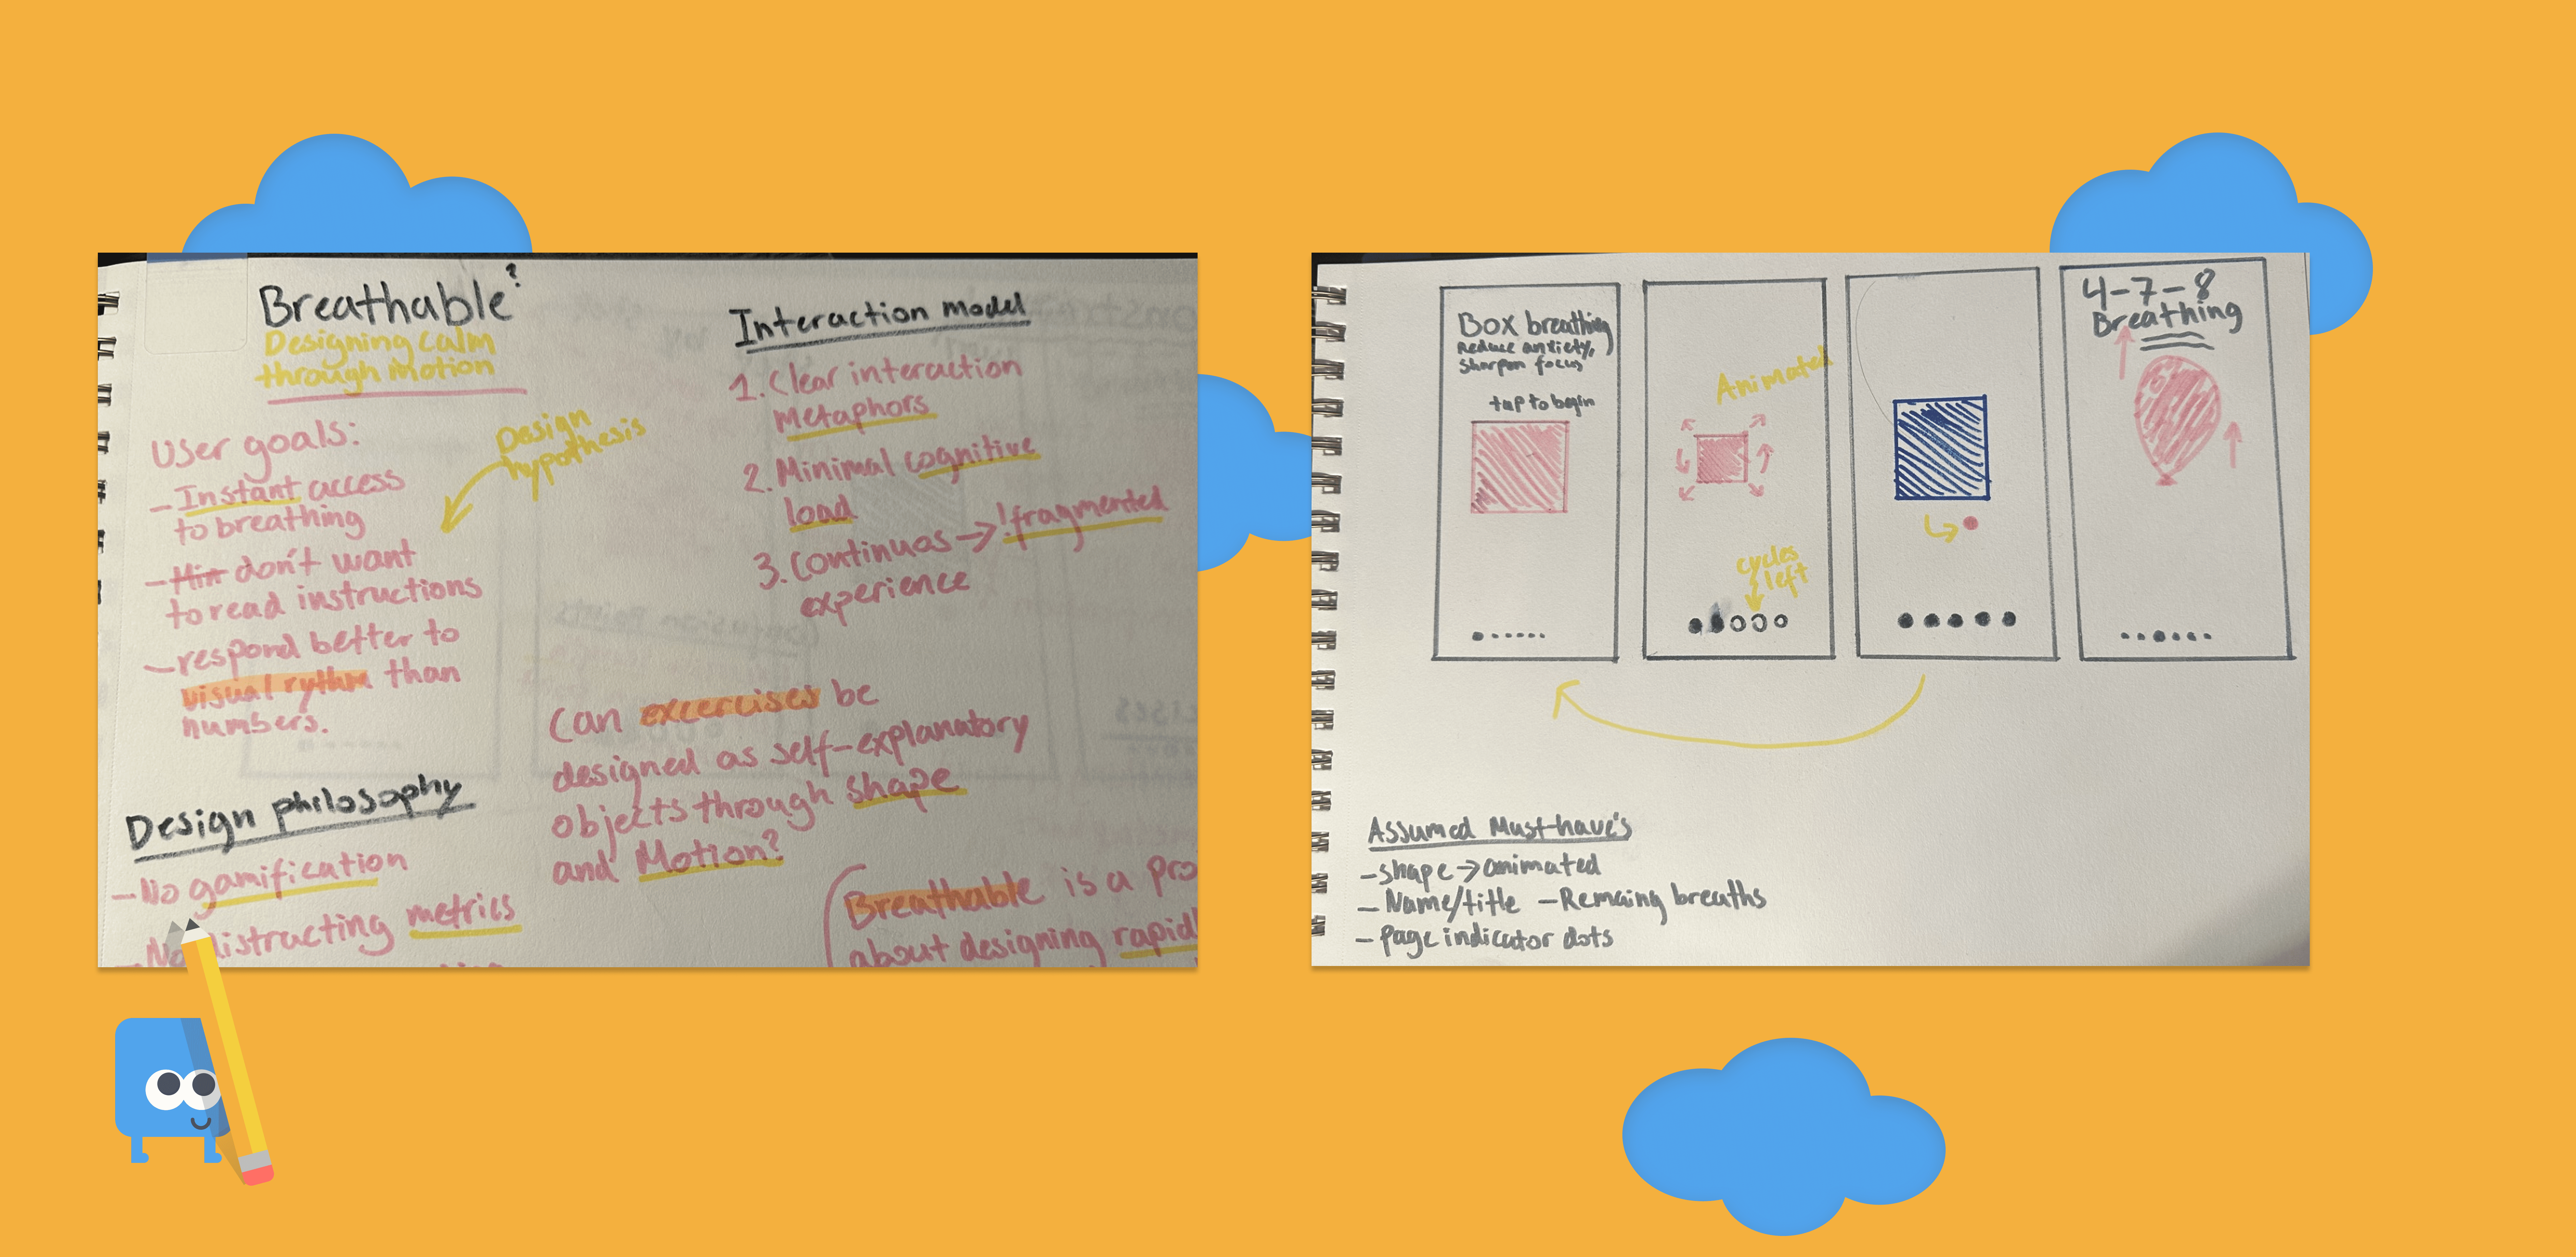 Breathable?
Designing Calm
through Motion
User goals:
- Instant access
to breathing
- Min don't want
to read instructions
- respond better to
visual rythm than
numbers.
Design
hypothesis
Design philosophy
- No gamification
- No distracting metrics
Interaction model
1. Clear interaction
Metaphors
2. Minimal cognitive
load
3. Continuos → !fragmented
experience
Can excercises be
designed as self-explanatory
objects through shape
and Motion?
Breathable is a pro
about designing rapid
Box breathing
Reduce anxiety,
Sharpen focus
tap to begin
Animated
cycles
left
4-7-8
Breathing
Assumed Must-have's
- shape → animated
- Name/title - Remaing breaths
- page indicator dots